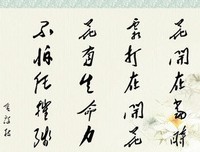 花開在當時
霜打在開花
花有生命力
不怕任摧殘